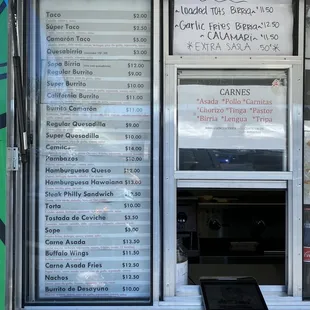 Taco $2.00
Super Taco $5.00
Camaron Taco $5.00
Quesabirria $5.00
Sope Birria $12.00
Regular Burrito $9.00
Super Burrito $10.00
California Burrito $11.00
Burrito Camaron $11.00
Regular Quesadilla $9.00
Super Quesadilla $10.00
Cemica $14.00
Pambazos $10.00
Hamburguesa Queso $12.00
Hamburguesa Hawaiana $13.00
Steak Philly Sandwich
Torta $10.00
Tostada de Ceviche
Sope
Carne Asada $13.50
Buffalo Wings $11.50
Carne Asada Fries $13.50
Nachos $12.50
Burrito de Desayuno $10.00
Loaded Tots Birria - $11.50
Garlic Fries Birria $12.50
- CALAMARI - $11.50
*EXTRA SALSA 50¢*
CARNES
*Asada *Pollo *Carnitas
*Chorizo *Tinga *Pastor
*Birria *Lengua *Tripa